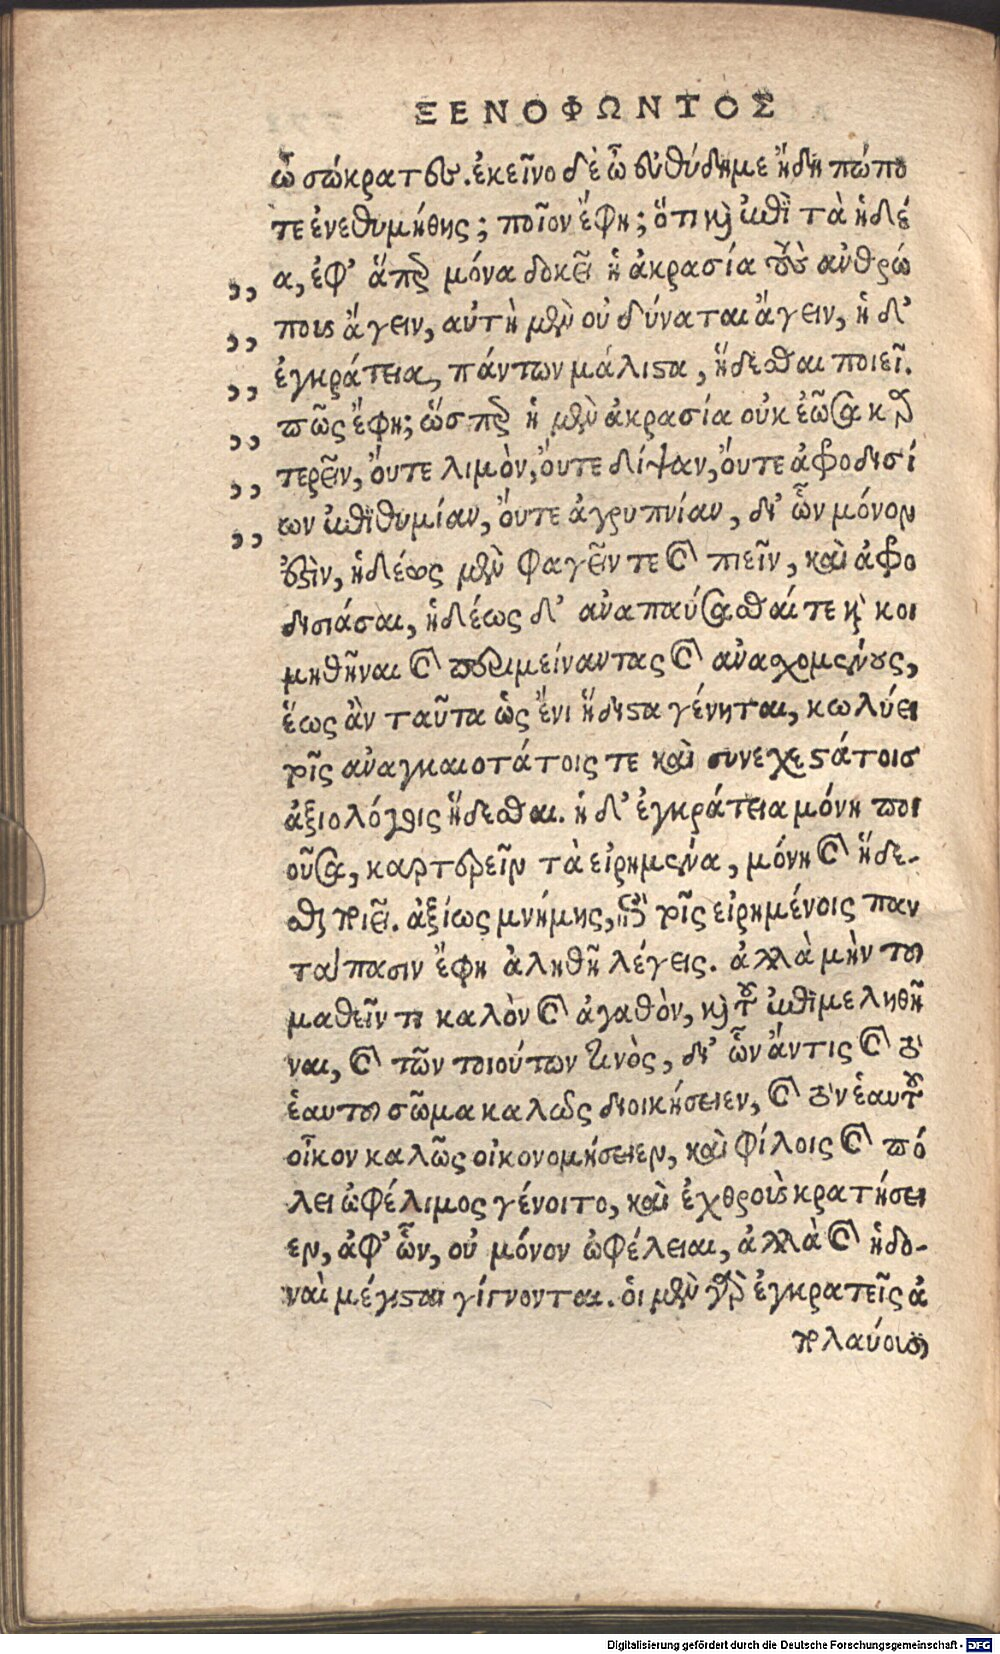 ΞΕΝΟΦΩΝΤΟΣ
ὦ σώκρατες. ἐκεῖνο δὲ ὦ εὐθύδημε ἤδη πώπο
τε ἐνεθυμήθης; ποῖον ἔφη; ὅτι καὶ ἐπὶ τὰ ἡδέ
,, α, ἐφ’ ἅπερ μόνα δοκεῖ ἡ ἀκρασία τοὺς ἀνθρώ
,, πους ἄγειν, αὐτὴ μὲν οὐ δύναται ἄγειν, ἡ δ’
,, ἐγκράτεια, πάντων μάλιστα, ἥδεσθαι ποιεῖ.
,, πῶς ἔφη; ὥσπερ ἡ μὲν ἀκρασία οὐκ ἐῶσα καρ
,, τερεῖν, ὄυτε λιμὸν, ὄυτε δίψαν, ὄυτε ἀφροδισί
,, ων ἐπιθυμίαν, ὄυτε ἀγρυπνίαν, δι’ ὧν μόνον
ἐξὶν, ἡδέως μὲν φαγεῖν τε καὶ πιεῖν, καὶ ἀφρο
δισιάσαι, ἡδέως δ’ ἀναπαύσασθαί τε καὶ κοι
μηθῆναι καὶ περιμείναντας καὶ ἀνασχομένους,
ἕως ἂν ταῦτα ὡς ἔνι ἥδιστα γένηται, κωλύει
τοῖς ἀναγκαιοτάτοις τε καὶ συνεχεστάτοις
ἀξιολόγοις ἥδεσθαι. ἡ δ’ ἐγκράτεια μόνη ποι
οῦσα, καρτερεῖν τὰ εἰρημένα, μόνη καὶ ἥδε-
σθαι ποιεῖ. ἀξίως μνήμης, ἐπὶ τοῖς εἰρημένοις παν
τάπασιν ἔφη ἀληθῆ λέγεις. ἀλλὰ μὴν τοῦ
μαθεῖν τι καλὸν καὶ ἀγαθὸν, καὶ τοῦ ἐπιμεληθῆ
ναι, καὶ τῶν τοιούτων τινὸς, δι’ ὧν ἄντις καὶ τὸ
ἑαυτοῦ σῶμα καλῶς διοικήσειεν, καὶ τὸν ἑαυτοῦ
οἶκον καλῶς οἰκονομήσειεν, καὶ φίλοις καὶ πό
λει ὠφέλιμος γένοιτο, καὶ ἐχθροὺς κρατήσει
εν, ἀφ’ ὧν, οὐ μόνον ὠφέλειαι, ἀλλὰ καὶ ἡδο-
ναὶ μέγισται γίγνονται. ὁι μὲν γὰρ ἐγκρατεῖς ἀ
πολαύουσι
Digitalisierung gefördert durch die Deutsche Forschungsgemeinschaft - DFG